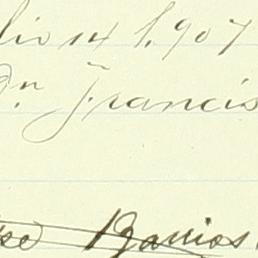 lio 14 1.907
Dn Francis
se Barrios.